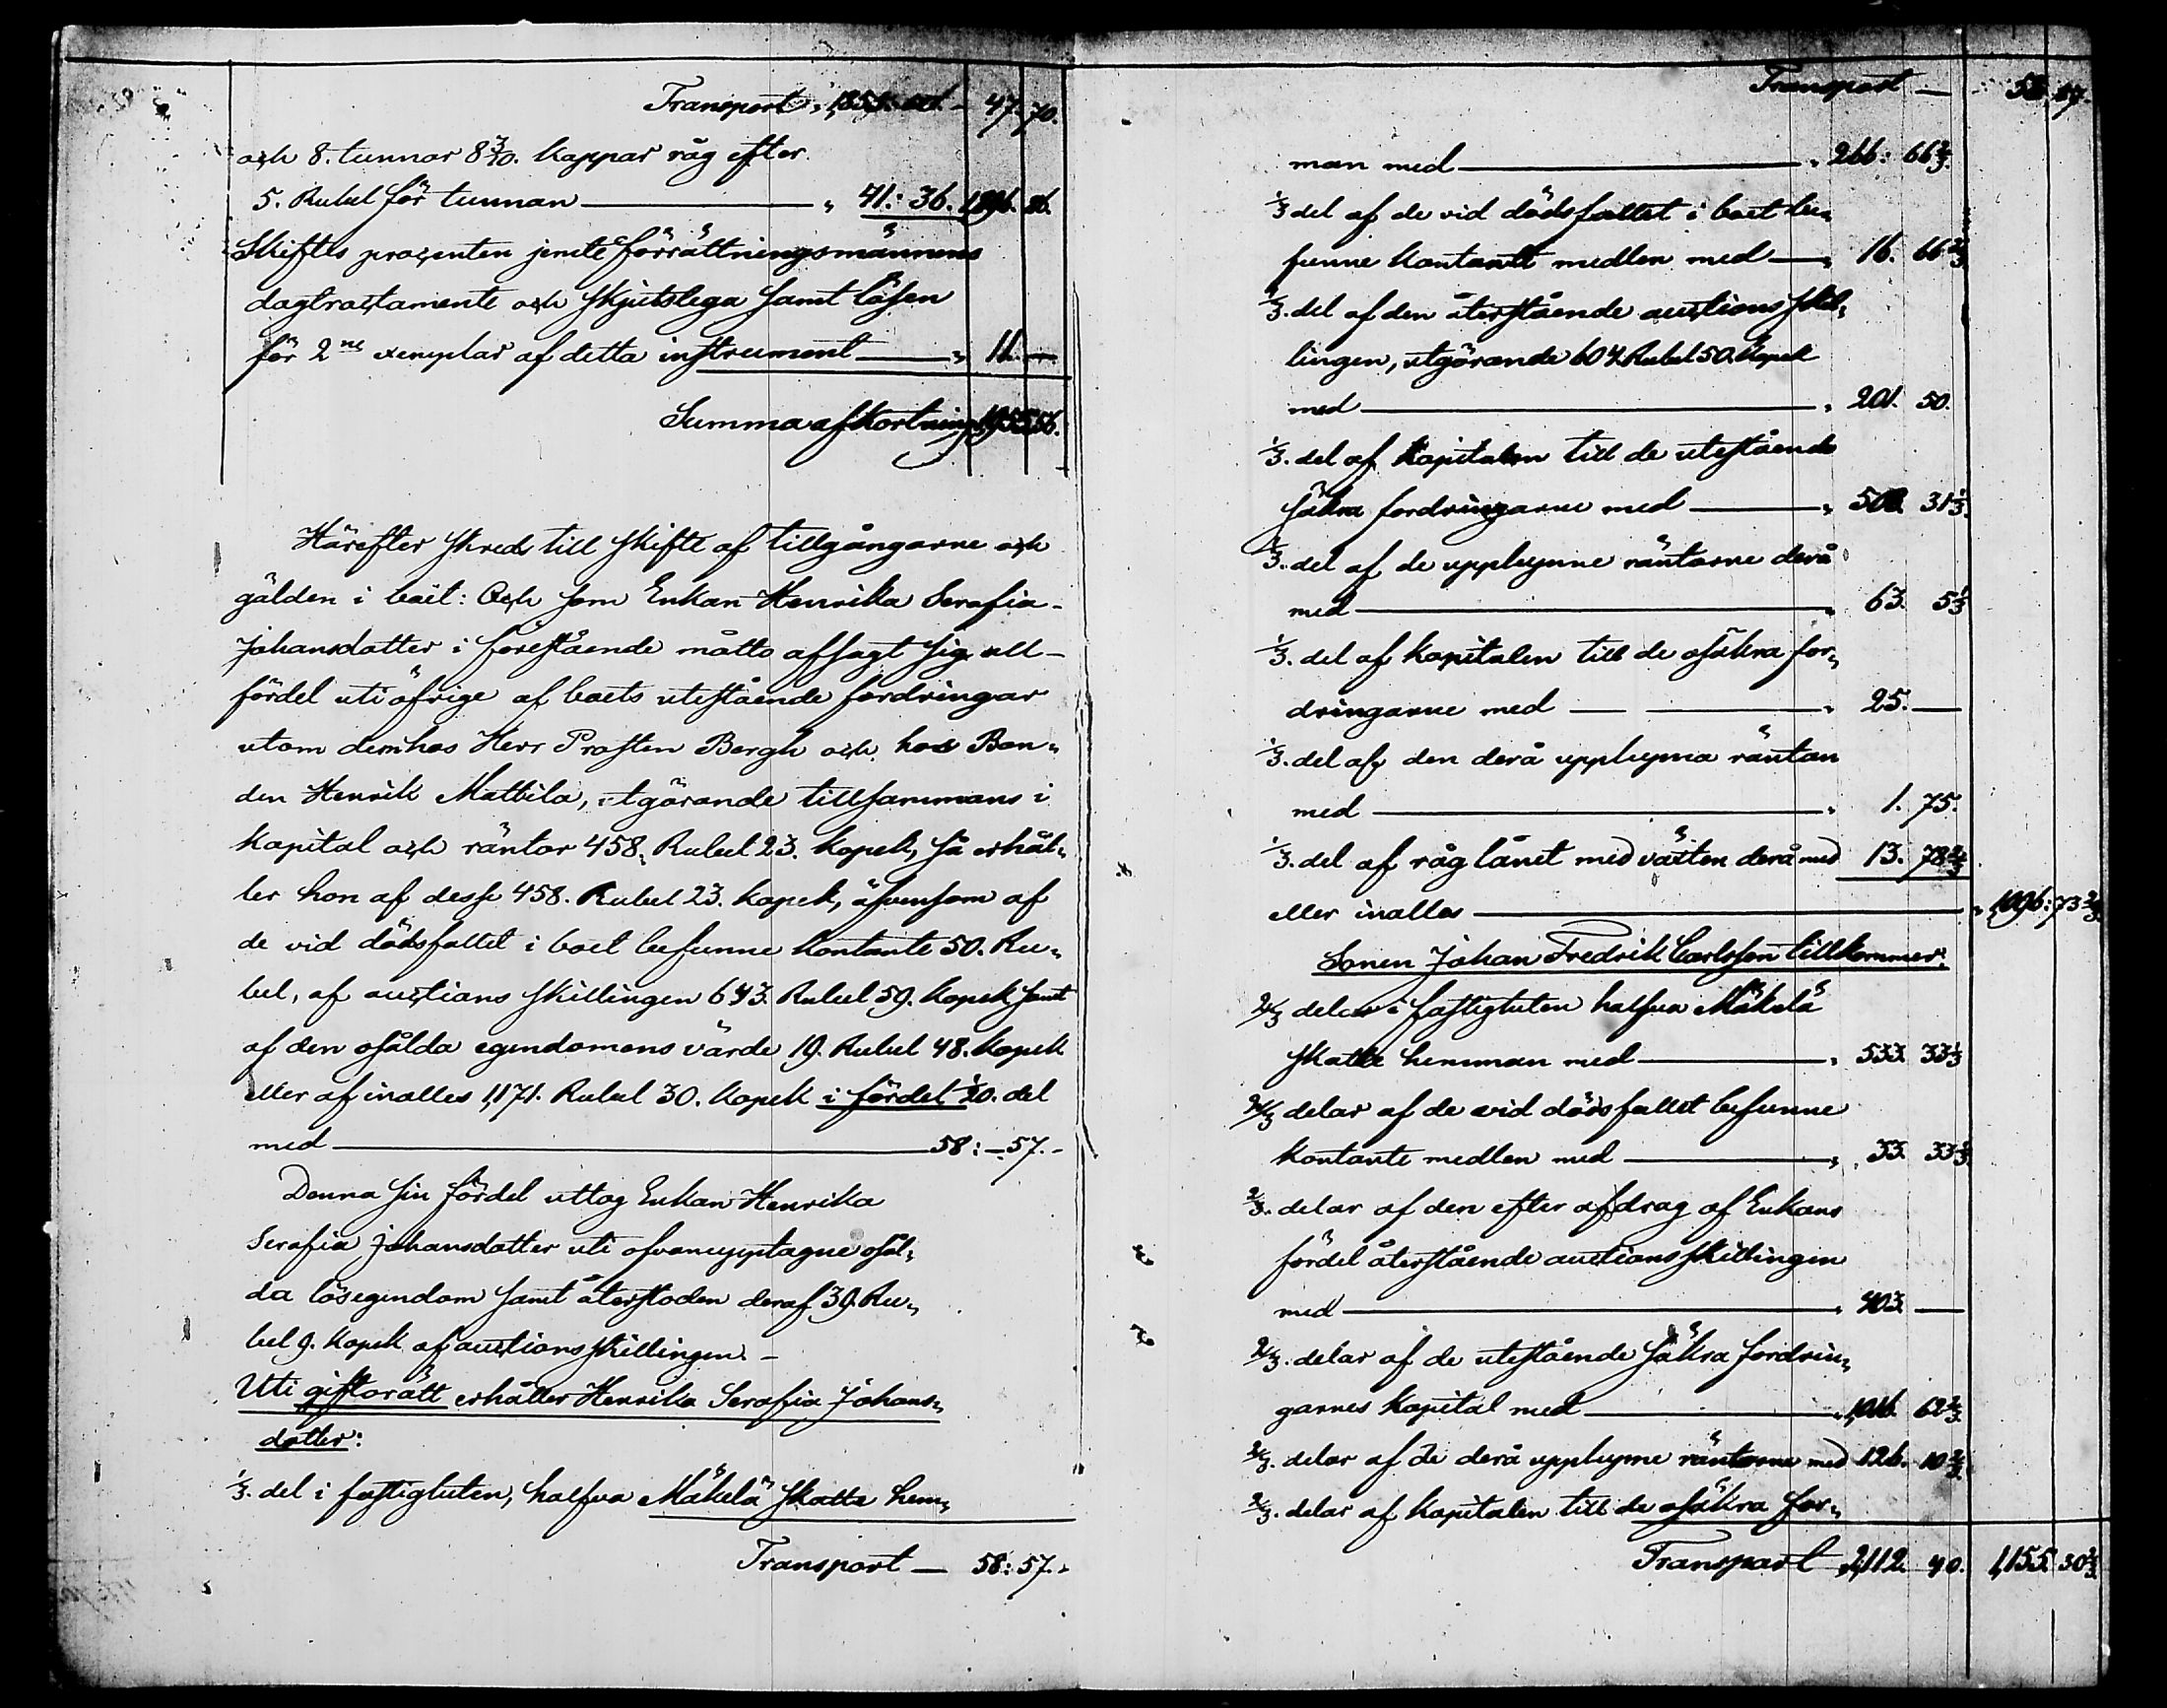 Transport „ 1,855: – 47. 70.
och 8. tunnor 8 3/10. kappar råg efter
5. Rubel för tunnan — „ 41: 36. 1,896. 86.
Skiftes procenten jemte förrättningsmännens
dagtractamente och skjutslega samt lösen
för 2ne exemplar af detta instrument — „ 11. —
Summa afkortning 1,955. 56.
Härefter skreds till skifte af tillgångarne och
gälden i boet: Och som Enkan Henrika Serafia
Johansdotter i förestående måtto afsagt sig all
fördel uti öfrige af boets utestående fordringar
utom dem hos Herr Prosten Bergh och hos Bon„
den Henrik Mattila, utgörande tillsammans i
kapital och räntor 458. Rubel 23. kopek, så erhål„
ler hon af desse 458. Rubel 23. kopek, äfvensom af
de vid dödsfallet i boet befunne kontante 50. Ru„
bel, af auctions skillingen 643. Rubel 59. kopek samt
af den osålda egendomens värde 19. Rubel 48. kopek
eller af inalles 1,171. Rubel 30. kopek i fördel 1/20. del
med — 58: – 57. –
Denna sin fördel uttog Enkan Henrika
Serafia Johansdotter uti ofvanupptagne osål„
da lösegendom samt återstoden deraf 39. Ru„
bel 9. kopek af auctions skillingen. –
Uti giftorätt erhåller Henrika Serafia Johans„
dotter:
1/3. del i fastigheten, halfva Mäkelä skatte hem„
Transport — 58: 57. –
Transport — 58. 57.
man med — „ 266: 66 2/3.
1/3 del af de vid dödsfallet i boet be„
funne kontante medlen med — „ 16. 66 2/3.
1/3. del af den återstående auctions skil„
lingen, utgörande 604. Rubel 50. kopek
med — „ 201. 50.
1/3. del af kapitalen till de utestående
säkra fordringarne med — „ 508. 31 1/3.
1/3. del af de upplupne räntorne derå
med — „ 63. 5 1/3
1/3. del af kapitalen till de osäkra for„
dringarne med — „ 25. —
1/3. del af den derå upplupna räntan
med — „ 1. 75.
1/3. del af råg lånet med växten derå med 13. 78 2/3
eller inalles — „ 1,096: 73 2/3
Sonen Johan Fredrik Carlsson tillkommer:
2/3 delar i fastigheten halfva Mäkelä
skatte hemman med — „ 533. 33 1/3
2/3 delar af de vid dödsfallet befunne
kontante medlen med — „ 33. 33 1/3
2/3. delar af den efter afdrag af Enkans
fördel återstående auctions skillingen
med — „ 403. —
2/3. delar af de utestående säkra fordrin„
garnes kapital med — „ 1,016. 62 2/3.
2/3. delar af de derå upplupne räntorne med 126. 10 2/3.
2/3. delar af kapitalen till de osäkra for„
Transport 2,112. 40. 1,155. 30 2/3.